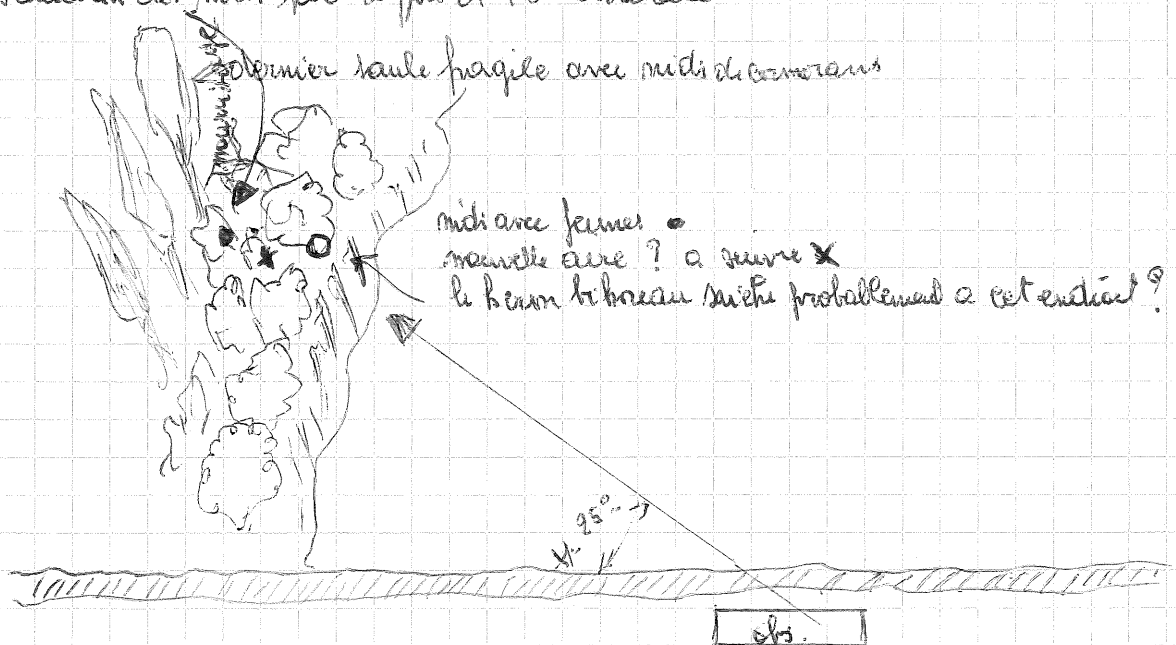 dernier saule fragile avec nids de cormorans
nids avec jeunes
nouvelle aire ? a suivre
le heron bihoreau niche probablement a cet endroit ?
25°
obs.